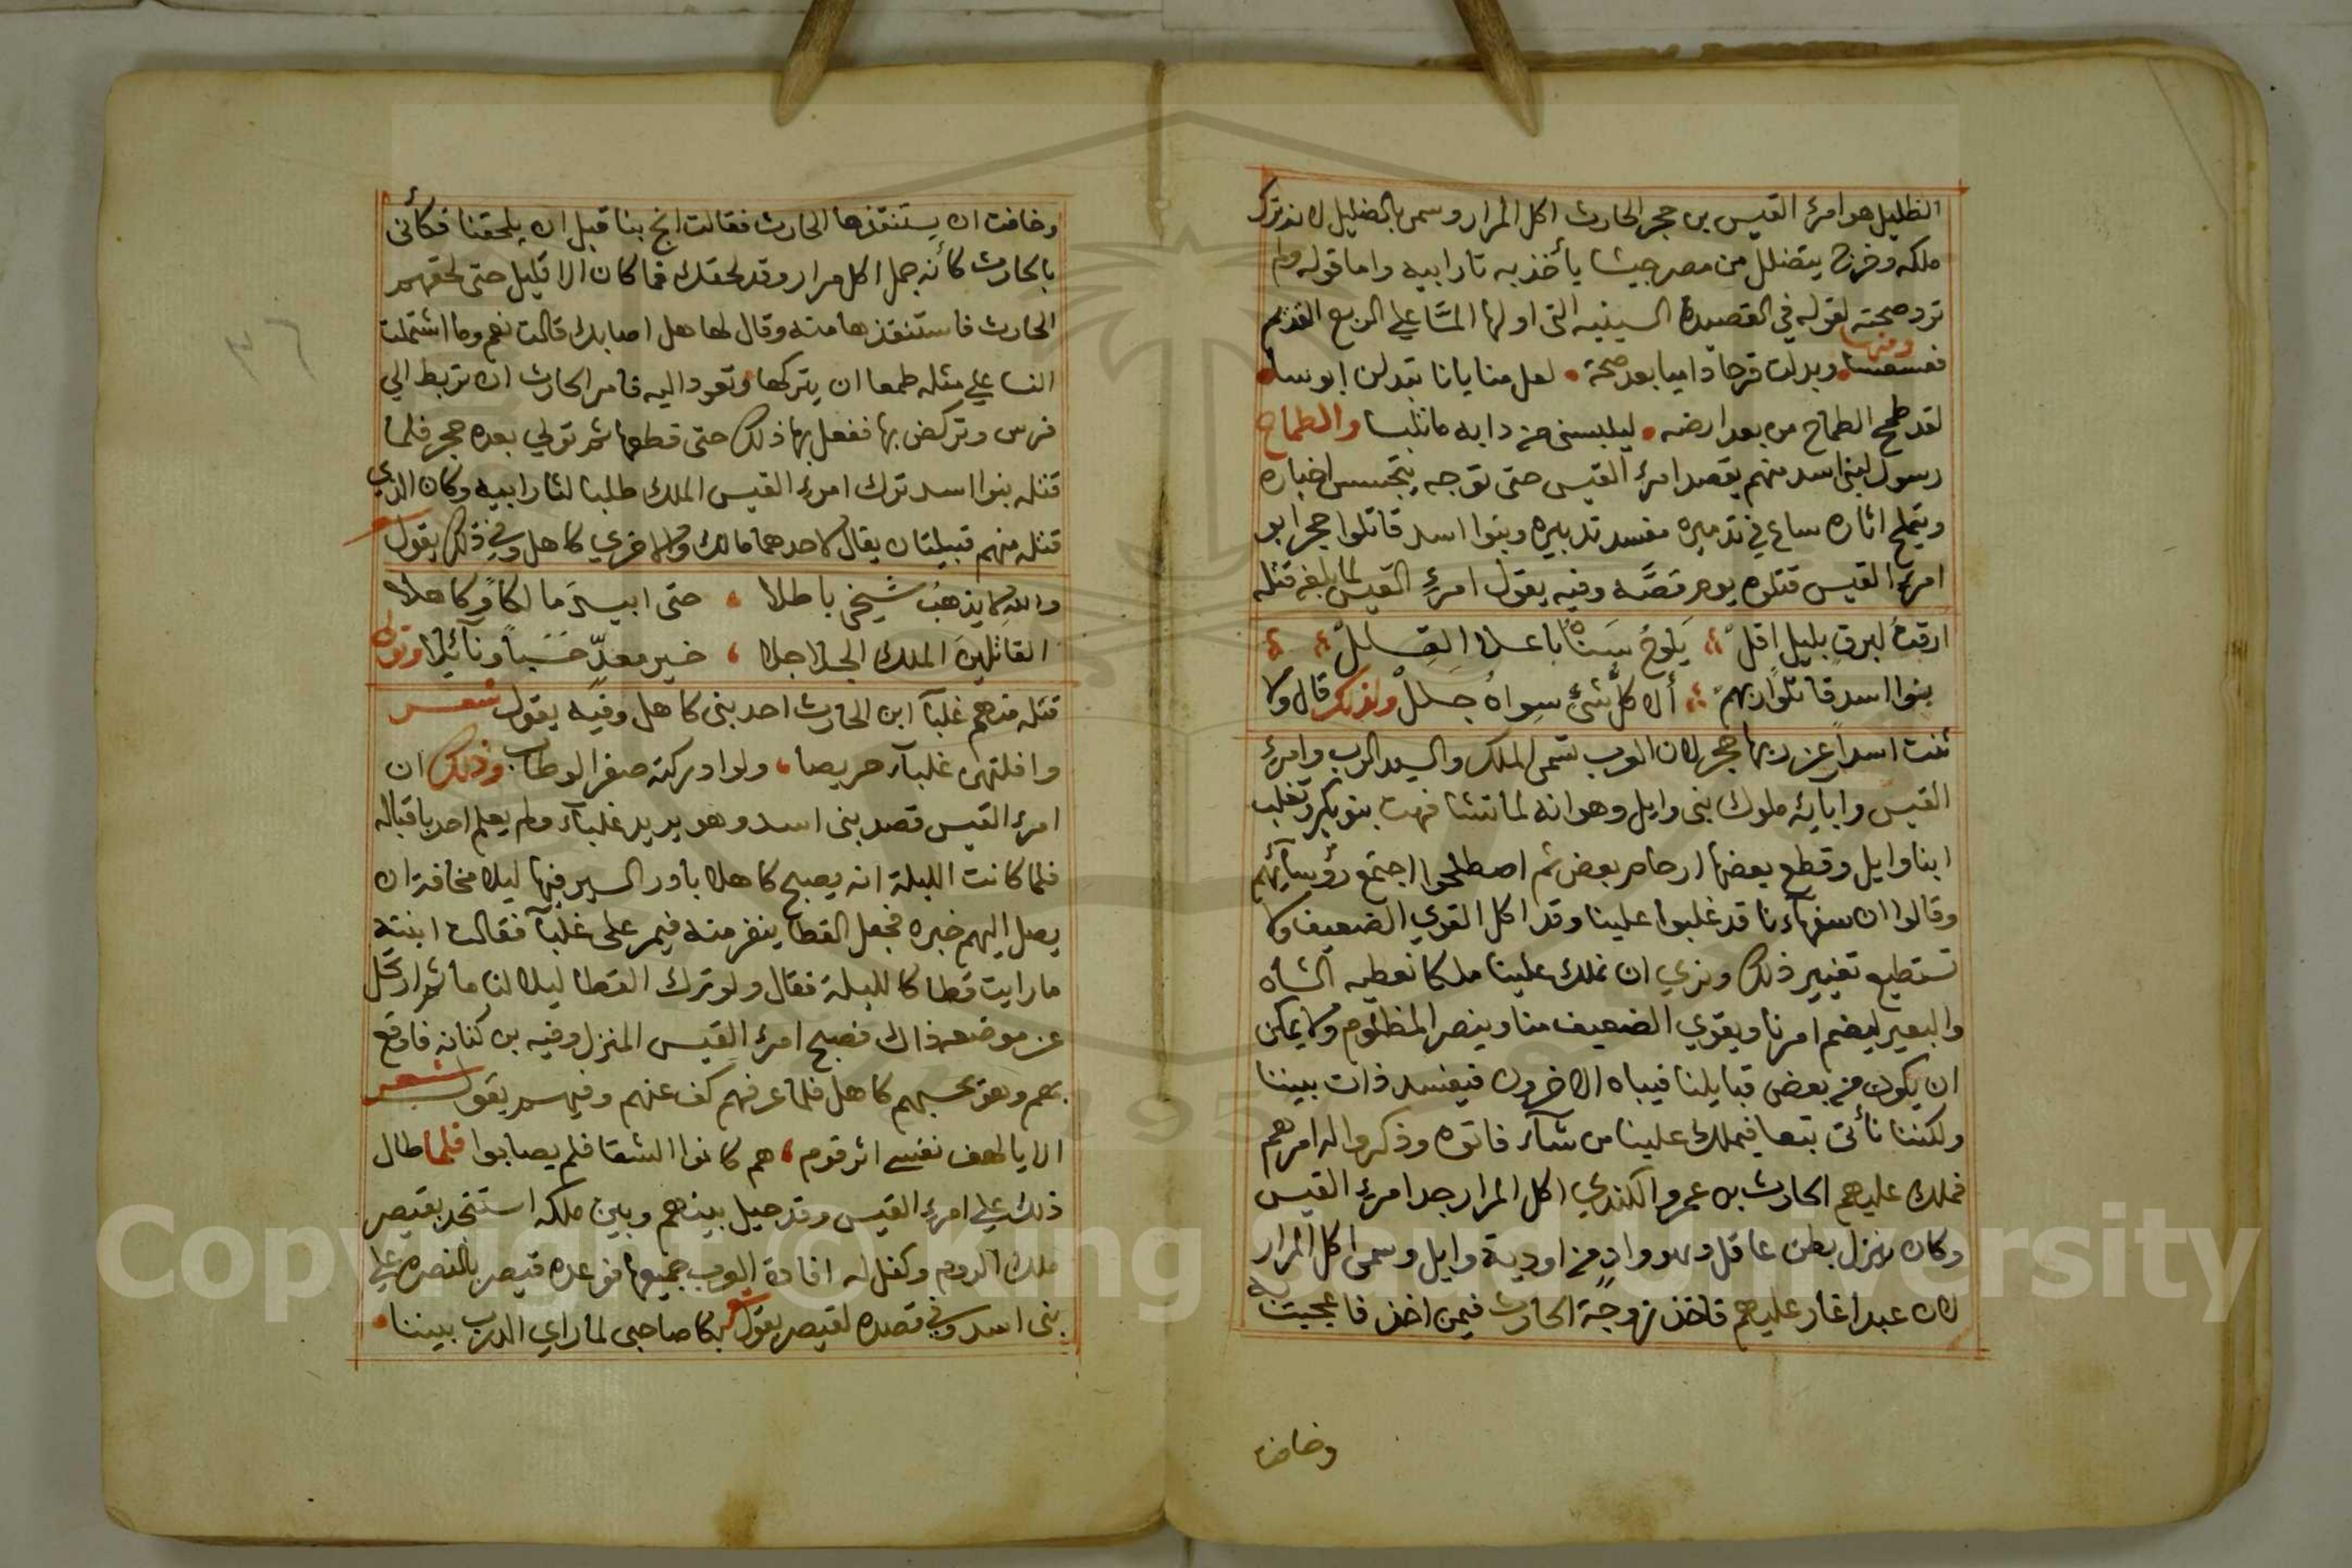 الظليل هو امرئ القيس بن حجر الحارث اكل المرار وسمي بالضليل لانه ترك
ملكه وخرج يتضلل من مصر جيشا يأخذ به ثار ابيه واما قوله ولم
ترد صحته لقوله في القصيدة السينيه التى اولها المّا علي الربع القديم
بعسعسا ومنها وبدلت قرحا داميا بعد صحة لعل منايانا تبدلن ابوسا
لقد طمح الطماح من بعد ارضه ليلبسنى من دايه ما تلبسا والطماح
رسول لبنى اسد منهم يقصد امرئ القيس حتى توجه يتجسس اخباره
ويتملح اثاره ساع في تدميره مفسد تدبيره وبنوا اسد قاتلوا حجر ابو
امرئ القيس قتلوه يوم قصّه وفيه يقول امرئ القيس لما بلغه قتله
ارقت لبرق بليل اقلّ يَلوحُ سَناهُ باعلا القِللْ
بنوا اسد قاتلوا ربهم ألا كلّ شئ سِواهُ جللْ ولذلك قال ولا
ثنت اسدا عن ربها حجر لان العرب تسمى الملك والسيد الرب وامرئ
القيس وابايه ملوك بنى وايل وهو انه لما تشافهت بنو بكر وتغلب
ابنا وايل وقطع بعضها ارحام بعض ثم اصطلحوا اجتمع رؤسآئهم
وقالوا ان سفهاءنا قد غلبوا علينا وقد اكل القوي الضعيف ولا
تستطيع تغيير ذلك ونري ان نملك علينا ملكا نعطيه الشاه
والبعير ليضم امرنا ويقوي الضعيف منا وينصر المظلوم ولا يمكن
ان يكون من بعض قبايلنا فيباه الاخرون فيفسد ذات بيننا
ولكننا نأتى تبعا فيملك علينا من شآء فاتوه وذكروا له امرهم
فملك عليهم الحارث بن عمرو الكندي اكل المرار جد امرئ القيس
وكان ينزل بطن عاقل وهو وادٍ من اودية وايل وسمي اكل المرار
لان عبدا غار عليهم فاخذ زوجة الحارث فيمن اخذ فاعجبت به
وخافت
وخافت ان يستنقذها الحارث فقالت انج بنا قبل ان يلحقنا فكأنى
بالحارث كأنه جمل اكل مرار وقد لحقك فما كان الا قليل حتى لحقهم
الحارث فاستنقذها منه وقال لها هل اصابك قالت نعم وما اشتملت
النسا علي مثله طمعا ان يتركها وتعود اليه فامر الحارث ان تربط الي
فرس وتركض بها ففعل بها ذلك حتى قطعها ثم تولي بعده حجر فلما
قتله بنوا اسد ترك امرئ القيس الملك طلبا لثار ابيه وكان الذي
قتله منهم قبيلتان يقال لاحدهما مالك وللاخري كاهل وفي ذلك يقول شعر
والله لا يذهبُ شيخي باطلا حتى ابيرَ مالكاً وكاهلا
القاتلين الملك الحلاحلا خير معدّ حَسَباً ونائلا وتولى
قتله منهم غلبآ ابن الحارث احد بنى كاهل وفيه يقول شعر
وافلتهن غلبآء حريصا ولو ادركته صفر الوطاب وذلك ان
امرئ القيس قصد بنى اسد وهو يريد غلبآء ولم يعلم احد باقباله
فلما كانت الليلة انه يصبح كاهلا بادر السير فيها ليلا مخافة ان
يصل اليهم خبره فجعل القطا ينفر منه فيمر على غلبآ فقالت ابنته
ما رايت قطا كالليلة فقال ولو ترك القطا ليلا لنام ثم ارتحل
عن موضعه ذاك فصبح امرئ القيس المنزل وفيه بن كنانه فاوقع
بهم وهو يحسبهم كاهل فلما عرفهم كف عنهم وفيهم يقول شعر
الا يا لهف نفسي اثر قوم هم كانوا الشفا فلم يصابوا فلما طال
ذلك علي امرئ القيس وقد حيل بينهم وبين ملكه استنجد بقيصر
ملك الروم وكفل له افادة العرب جميعها فوعده قيصر بالنصره علي
بنى اسد وفي قصده لقيصر يقول شعر بكا صاحبى لما راي الدرب بيننا